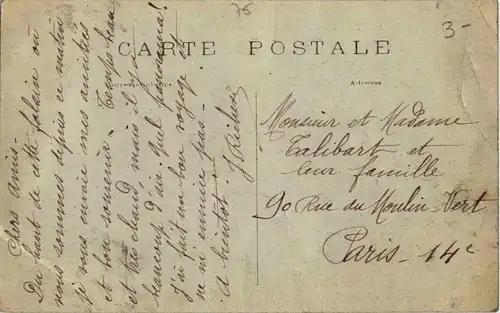 76
3-
CARTE POSTALE
Correspondance
Adresse
Chers amis -
Du haut de cette falaise où
nous sommes depuis ce matin
je vous envoie mes amitiés
et bon souvenir. Temps beau
et très chaud, mais il y a
beaucoup d'air. Quel panorama!
J'ai fait un bon voyage et
ne m'ennuie pas -
A bientôt.
Monsieur et Madame
Talibart et
leur famille
90 Rue du Moulin-Vert
Paris - 14e